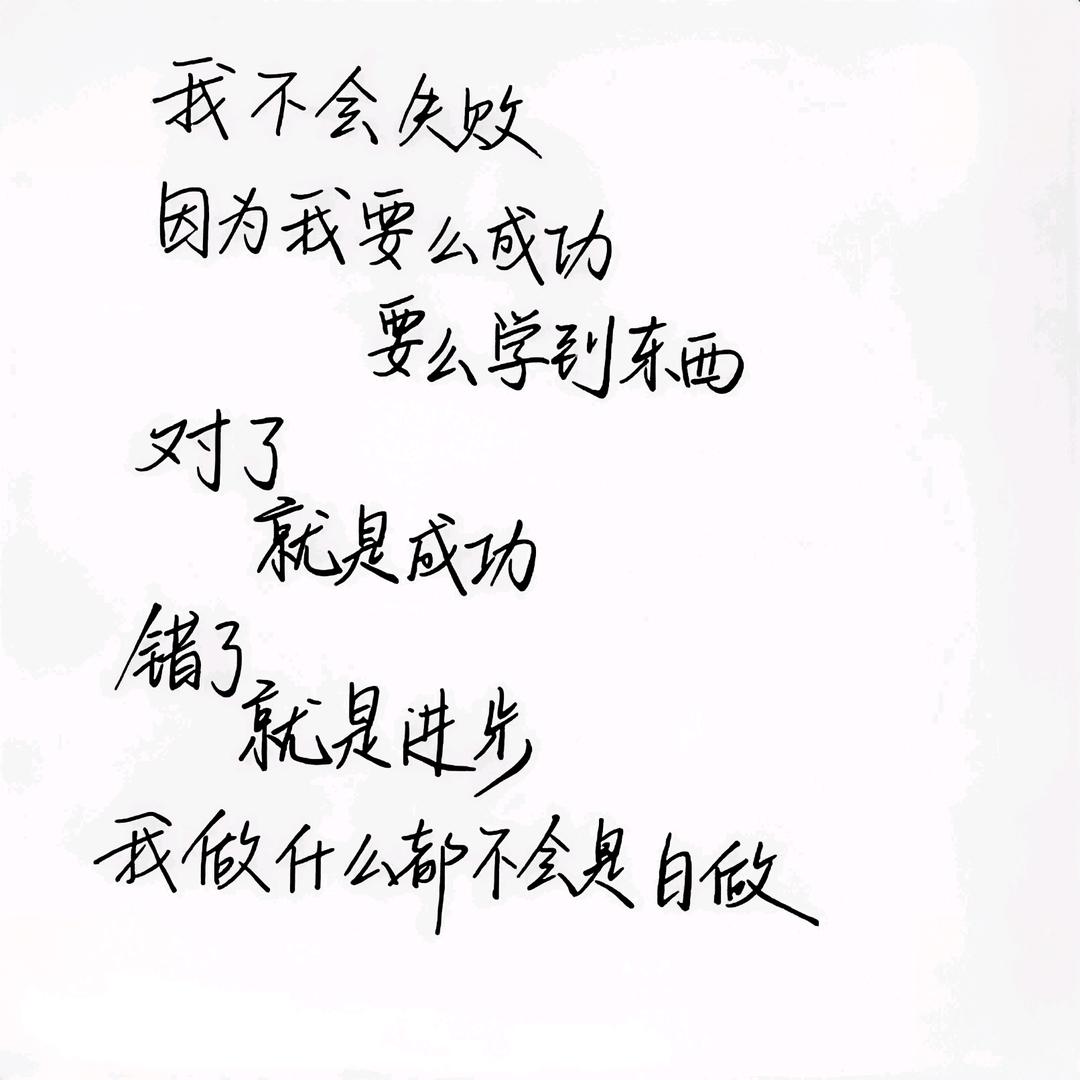 我不会失败
因为我要么成功
要么学到东西
对了
就是成功
错了
就是进步
我做什么都不会是白做